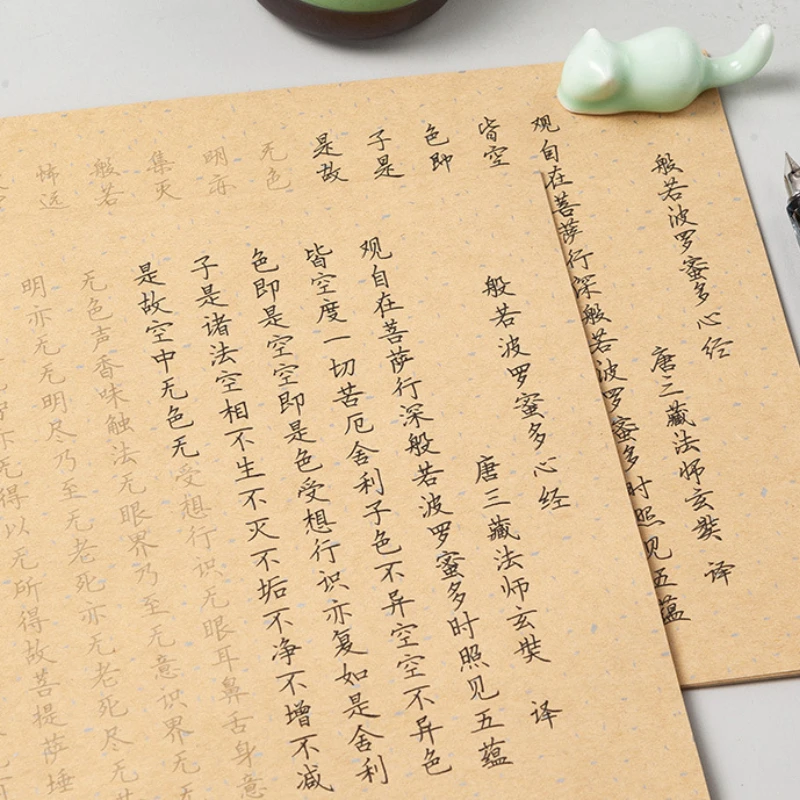 般若波罗蜜多心经
唐三藏法师玄奘 译
观自在菩萨行深般若波罗蜜多时照见五蕴
皆空
色即
子是
是故
无色
明亦
集灭
般若
怖远
般若波罗蜜多心经
唐三藏法师玄奘 译
观自在菩萨行深般若波罗蜜多时照见五蕴
皆空度一切苦厄舍利子色不异空空不异色
色即是空空即是色受想行识亦复如是舍利
子是诸法空相不生不灭不垢不净不增不减
是故空中无色无受想行识无眼耳鼻舌身意
无色声香味触法无眼界乃至无意识界无无
明亦无无明尽乃至无老死亦无老死尽无
亦无得以无所得故菩提萨埵